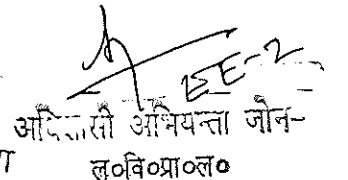 EE-2
अधिशासी अभियन्ता जोन-
ल०वि०प्रा०ल०